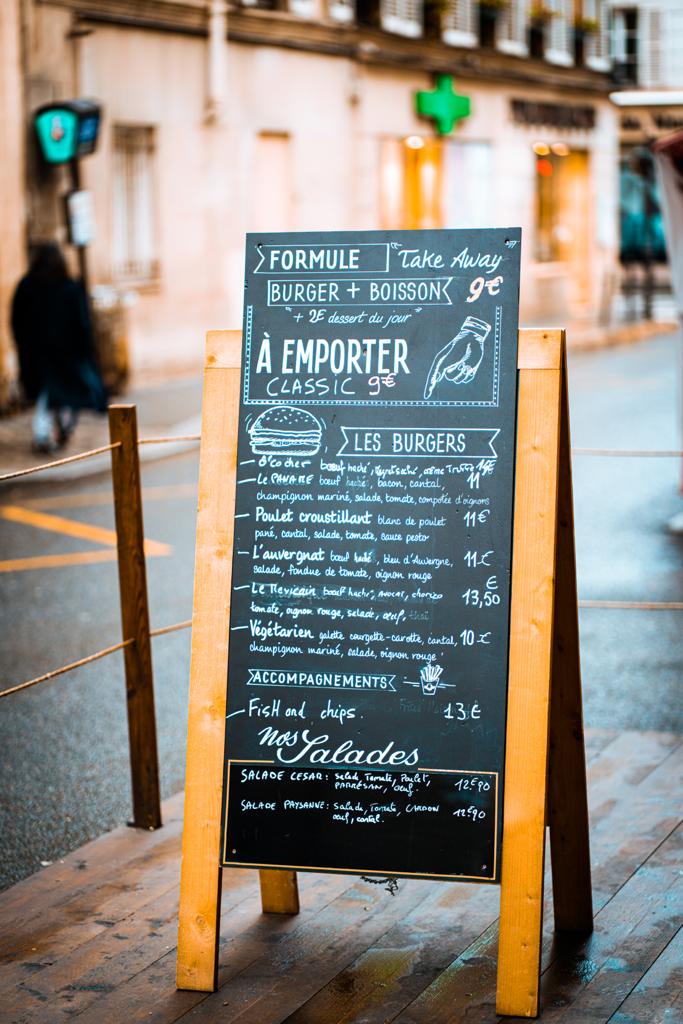 FORMULE "Take Away
BURGER + BOISSON 9€
"+ 2€ dessert du jour"
À EMPORTER
CLASSIC 9€
LES BURGERS
bœuf haché,
Le bœuf haché, bacon, cantal, 11
champignon mariné, salade, tomate, compotée d'oignons
Poulet croustillant blanc de poulet 11€
pané, cantal, salade, tomate, sauce pesto
L'auvergnat bœuf haché, bleu d'Auvergne, 11€
salade, fondue de tomate, oignon rouge
Le Mexicain bœuf haché, avocat, chorizo €
13,50
tomate, oignon rouge, salade, œuf,
Végétarien galette courgette-carotte, cantal, 10€
champignon mariné, salade, oignon rouge
ACCOMPAGNEMENTS
Fish and chips. 13€
nos Salades
SALADE CESAR: Salade, Tomate, Poulet, 12€90
PARMESAN, œuf.
SALADE PAYSANNE: Salade, Tomate, 12€90
œuf, cantal.